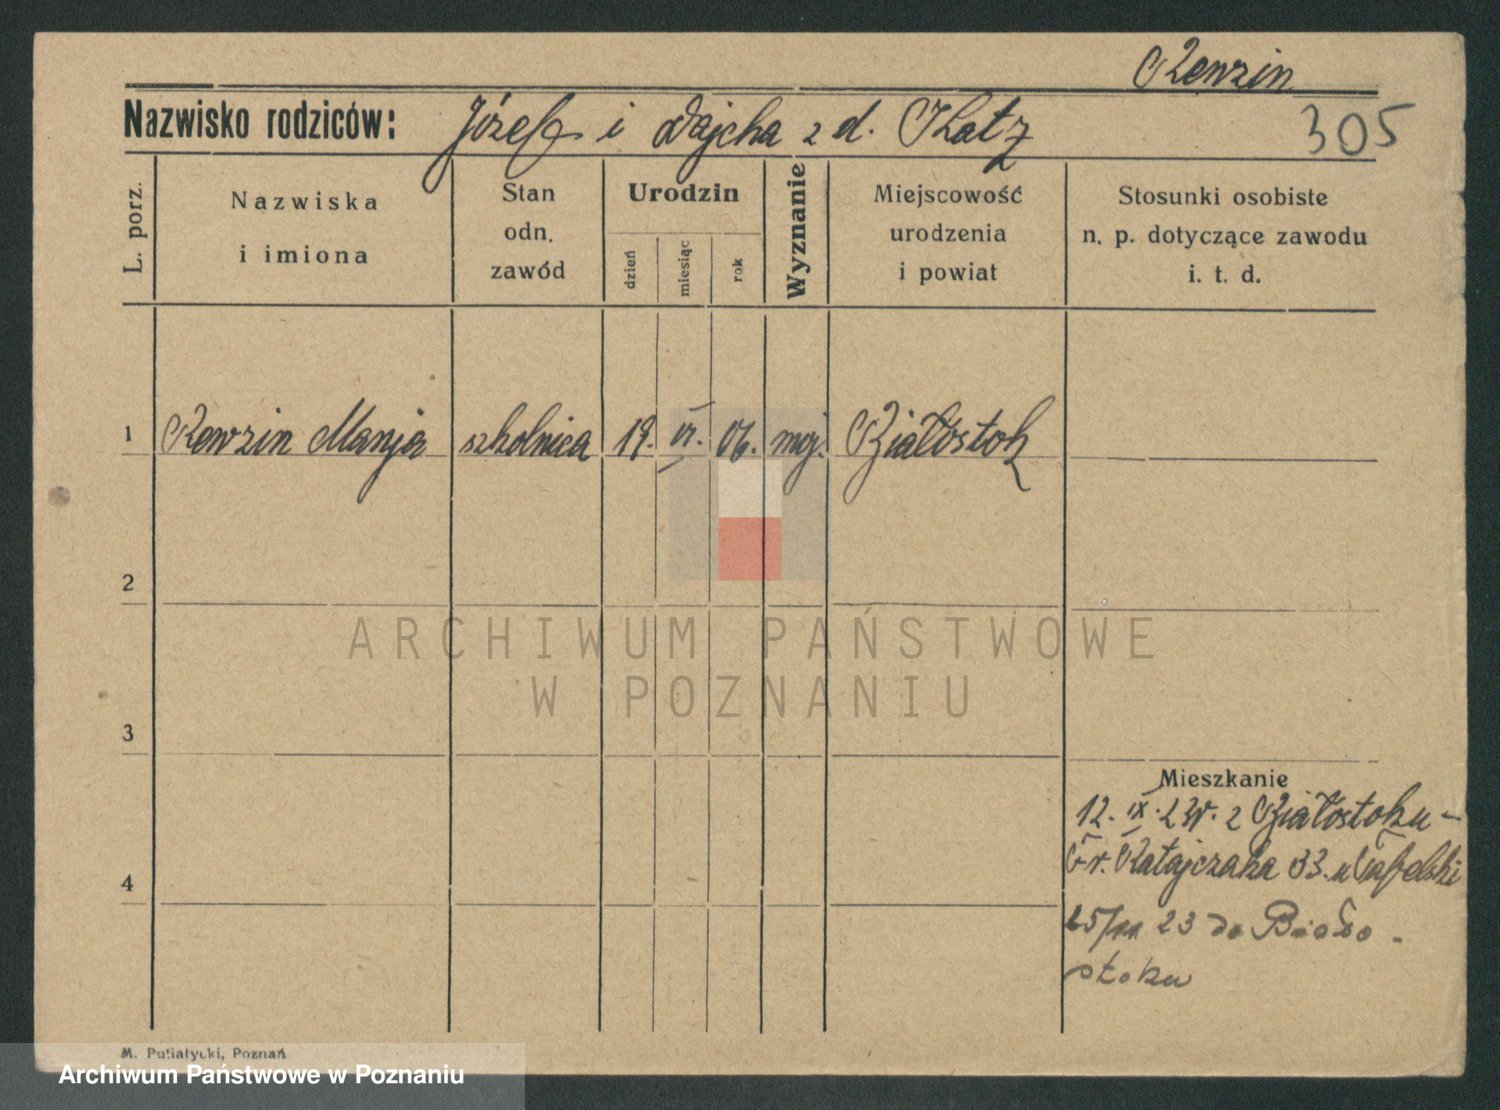 Rewzin
Nazwisko rodziców: Józef i Dajcha z d. Katz
305
L. porz.
Nazwiska
i imiona
Stan
odn.
zawód
Urodzin
dzień
miesiąc
rok
Wyznanie
Miejscowość
urodzenia
i powiat
Stosunki osobiste
n. p. dotyczące zawodu
i. t. d.
1 Rewzin Manja szkolnica 19. VI. 06. moj. Białostok
2
ARCHIWUM PAŃSTWOWE
W POZNANIU
3
Mieszkanie
12. IX. z Białostoku -
Fr. Ratajczaka 33. u
4
23 do Biało-
stoku
M. Putiatycki, Poznań
Archiwum Państwowe w Poznaniu